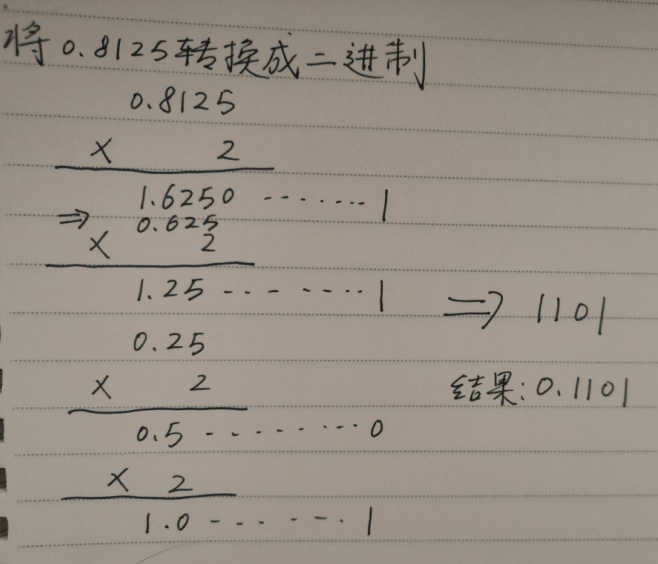 将0.8125转换成二进制
0.8125
× 2
1.6250 ······· 1
⇒ 0.625
× 2
1.25 ········ 1
⇒ 1101
0.25
× 2
结果:0.1101
0.5 ········· 0
× 2
1.0 ······· 1